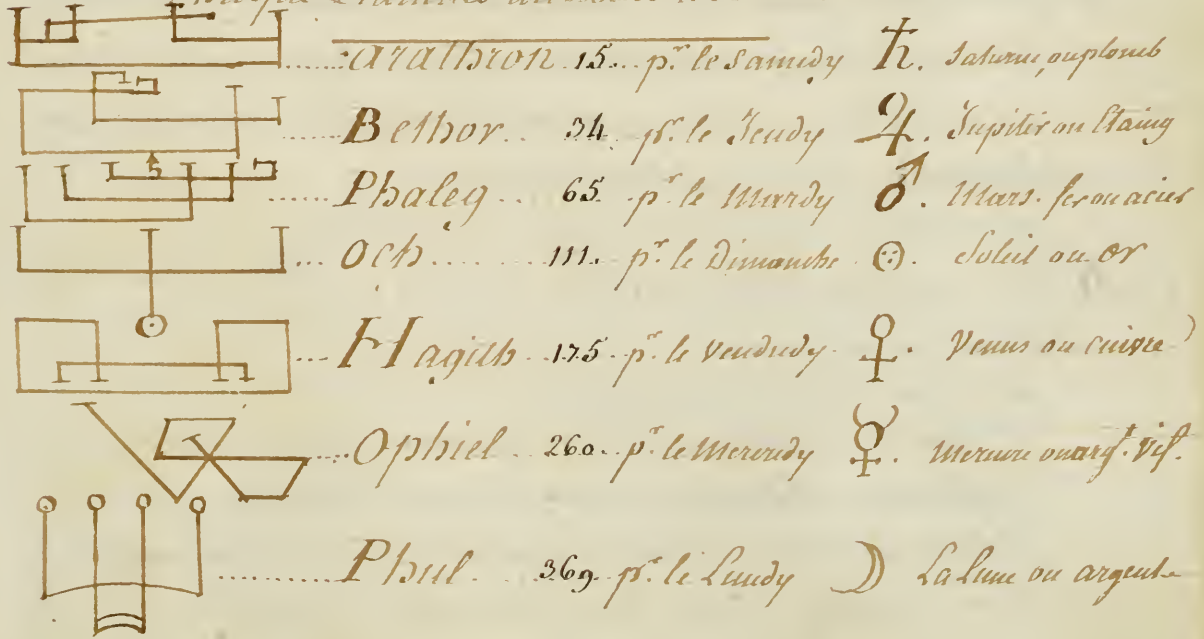 Arathron 15. pr. le Samedy ♄. Saturne, ou plomb
Bethor 34 pr. le Jeudy ♃. Jupiter ou Etaing
Phaleg 65 pr. le Mardy ♂. Mars. fer ou acier
Och 111. pr. le Dimanche ☉. Soleil ou or
Hagith 175 pr. le Vendredy ♀. Venus ou cuivre
Ophiel 260. pr. le Mercredy ☿. Mercure ou argt. vif.
Phul 369. pr. le Lundy ☽ La Lune ou argent